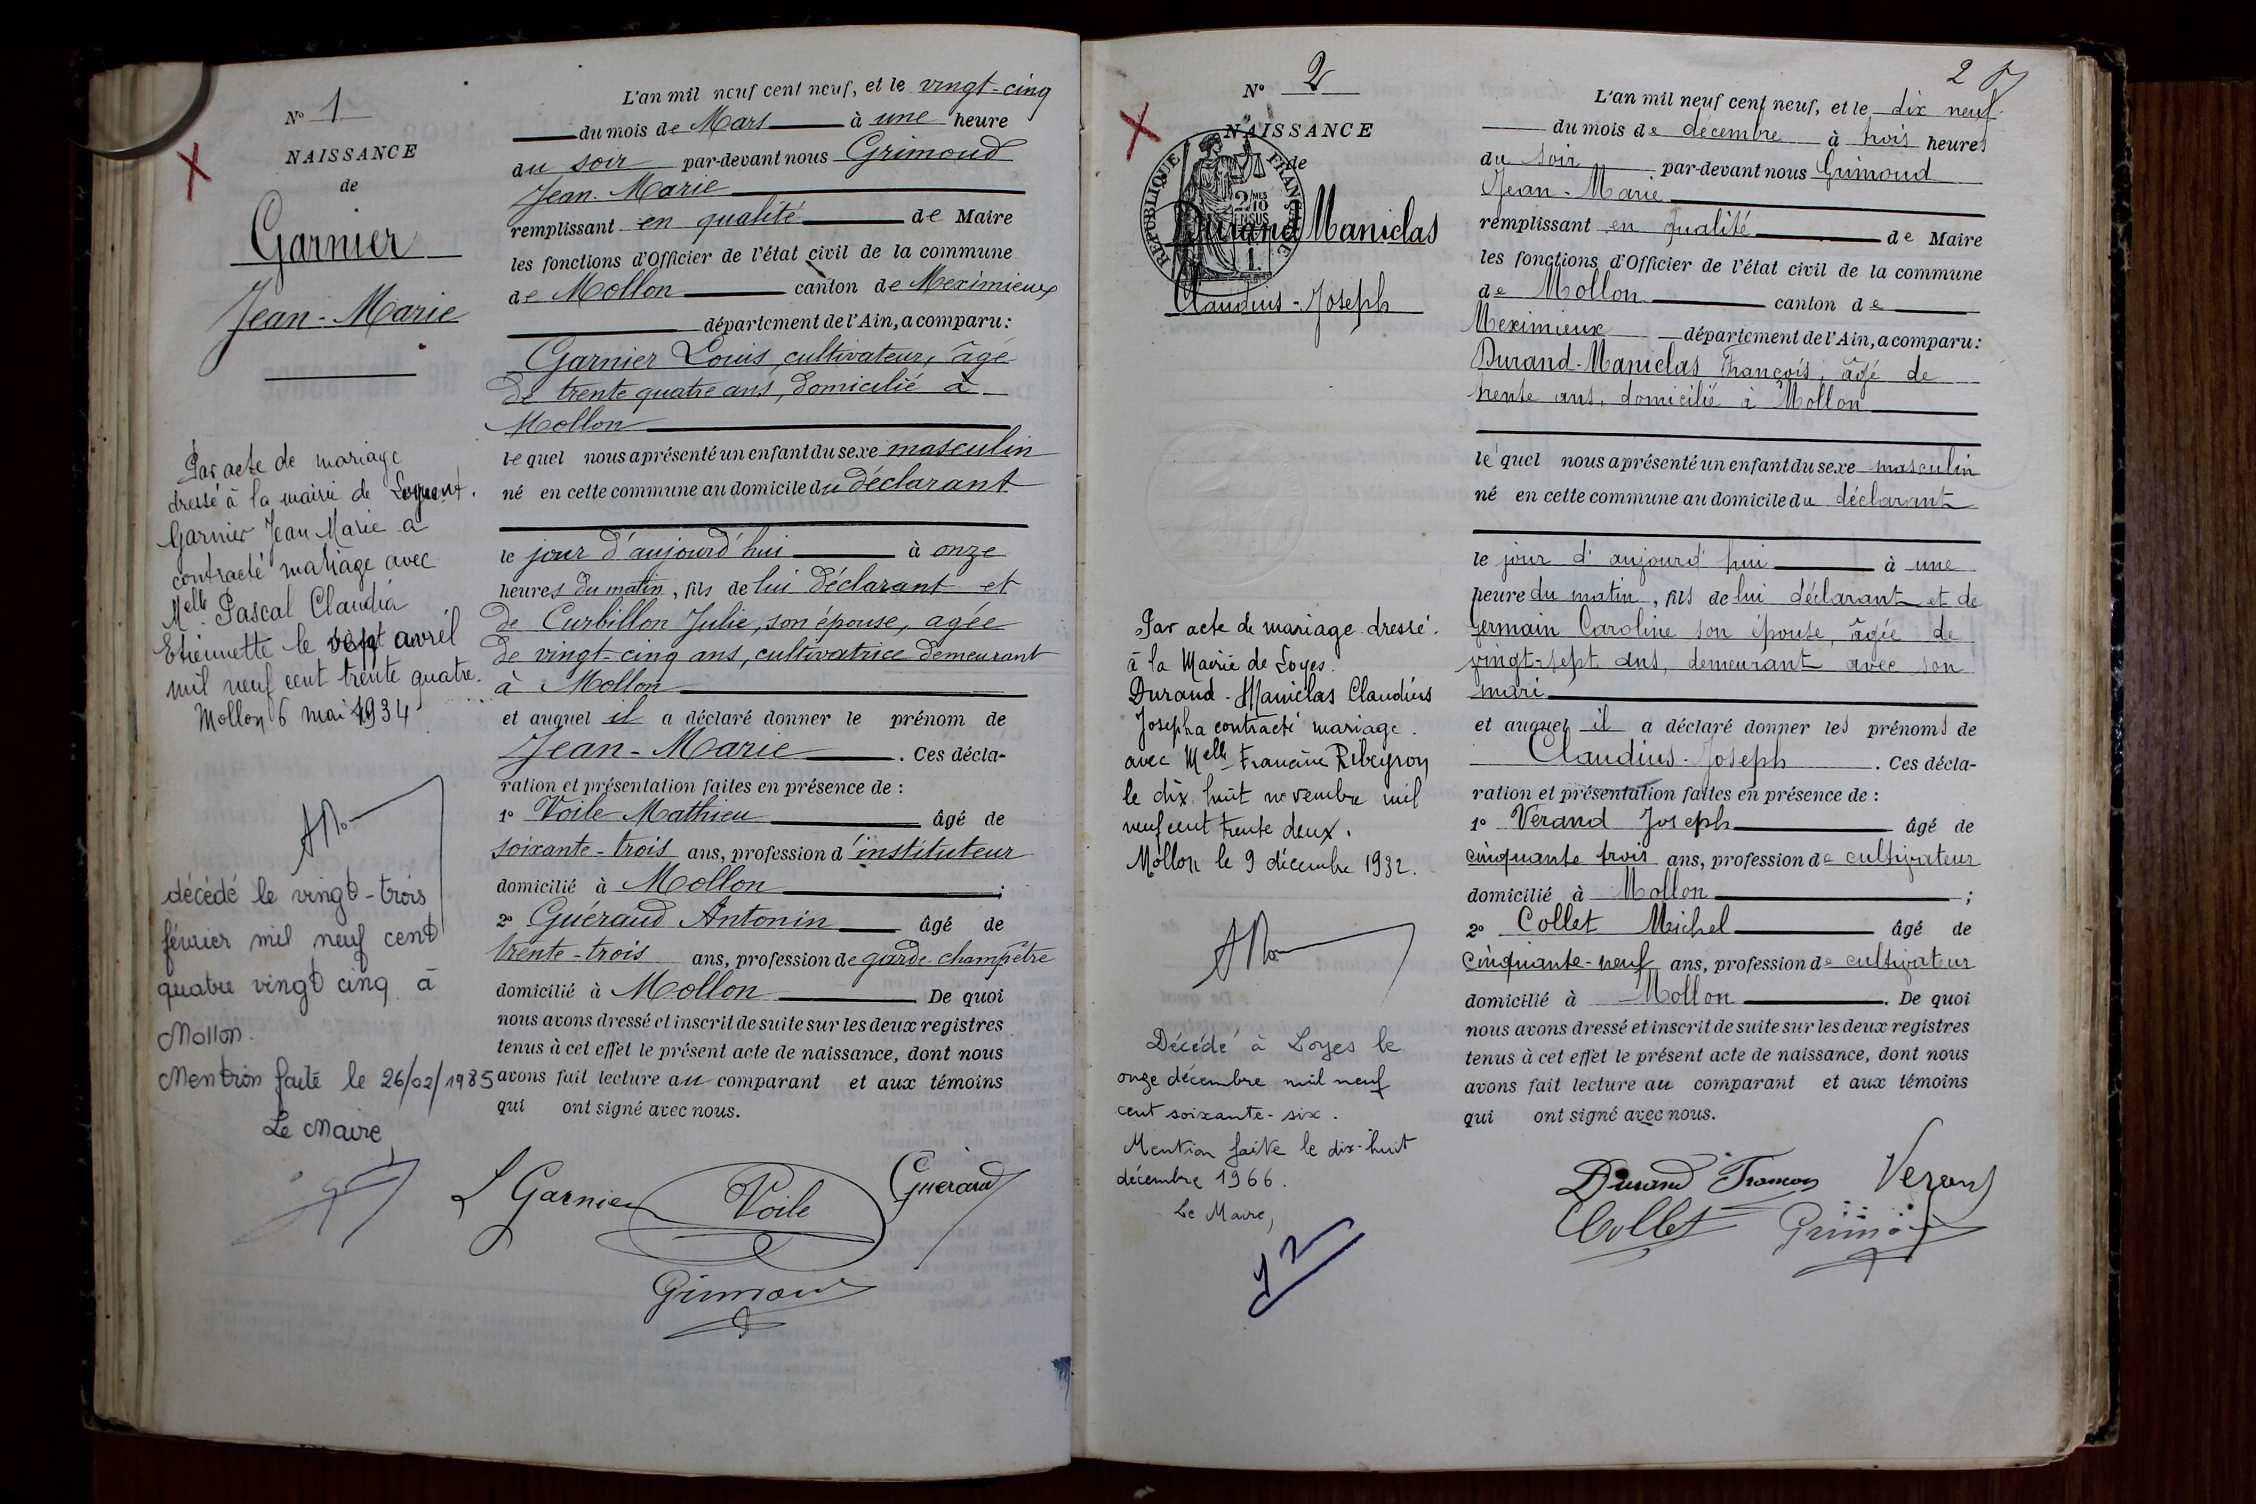 N° 1
NAISSANCE
de
Garnier
Jean-Marie
Par acte de mariage
dressé à la mairie de
Garnier Jean Marie a
contracté mariage avec
Melle Pascal Claudia
Etiennette le avril
mil neuf cent trente quatre.
Mollon 6 mai 1934
décédé le vingt-trois
février mil neuf cent
quatre vingt cinq à
Mollon.
Mention faite le 26/02/1985
Le Maire
L'an mil neuf cent neuf, et le vingt-cinq
du mois de Mars à une heure
du soir par-devant nous Grimoud
Jean-Marie
remplissant en qualité de Maire
les fonctions d'Officier de l'état civil de la commune
de Mollon canton de Meximieux
département de l'Ain, a comparu:
Garnier Louis, cultivateur, âgé
de trente quatre ans, domicilié à
Mollon
lequel nous a présenté un enfant du sexe masculin
né en cette commune au domicile du déclarant
le jour d'aujourd'hui à onze
heures du matin, fils de lui déclarant et
de Curbillon Julie, son épouse, agée
de vingt-cinq ans, cultivatrice demeurant
à Mollon
et auquel il a déclaré donner le prénom de
Jean-Marie. Ces décla-
ration et présentation faites en présence de :
1° Voile Mathieu âgé de
soixante-trois ans, profession d'instituteur
domicilié à Mollon ;
2° Guéraud Antonin âgé de
trente-trois ans, profession de garde-champêtre
domicilié à Mollon De quoi
nous avons dressé et inscrit de suite sur les deux registres
tenus à cet effet le présent acte de naissance, dont nous
avons fait lecture au comparant et aux témoins
qui ont signé avec nous.
L Garnier Voile Guéraud
Grimoud
2
N° 2
NAISSANCE
de
RÉPUBLIQUE FRANÇAISE
2/10 EN SUS
1
Durand Maniclas
Claudius-Joseph
Par acte de mariage dressé.
à la Mairie de Loyes.
Durand-Maniclas Claudius
Joseph a contracté mariage.
avec Melle Francine Ribeyron
le dix huit novembre mil
neuf cent trente deux.
Mollon le 9 décembre 1932.
Décédé à Loyes le
onze décembre mil neuf
cent soixante-six.
Mention faite le dix-huit
décembre 1966.
Le Maire,
L'an mil neuf cent neuf, et le dix neuf
du mois de décembre à trois heures
du soir par-devant nous Grimoud
Jean-Marie
remplissant en qualité de Maire
les fonctions d'Officier de l'état civil de la commune
de Mollon canton de
Meximieux département de l'Ain, a comparu:
Durand-Maniclas François, âgé de
trente ans, domicilié à Mollon
lequel nous a présenté un enfant du sexe masculin
né en cette commune au domicile du déclarant
le jour d'aujourd'hui à une
heure du matin, fils de lui déclarant et de
Germain Caroline son épouse, âgée de
vingt-sept ans, demeurant avec son
mari
et auquel il a déclaré donner les prénoms de
Claudius-Joseph. Ces décla-
ration et présentation faites en présence de :
1° Verand Joseph âgé de
cinquante trois ans, profession de cultivateur
domicilié à Mollon ;
2° Collet Michel âgé de
cinquante-neuf ans, profession de cultivateur
domicilié à Mollon. De quoi
nous avons dressé et inscrit de suite sur les deux registres
tenus à cet effet le présent acte de naissance, dont nous
avons fait lecture au comparant et aux témoins
qui ont signé avec nous.
Durand François Verand
Collet Grimoud